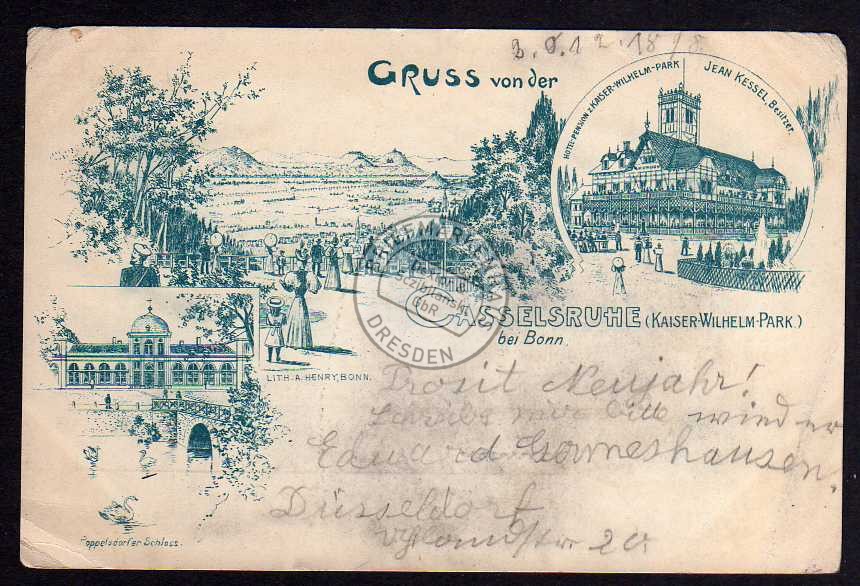 GRUSS von der
HOTEL-PENSION z. KAISER-WILHELM-PARK
JEAN KESSEL, Besitzer.
CASSELSRUHE (KAISER-WILHELM-PARK.)
bei Bonn.
LITH. A. HENRY, BONN.
Poppelsdorfer Schloss.
BRIEFMARKENHA
GbR
DRESDEN
Prosit Neujahr!
Schreibe mir bitte wieder
Eduard
Düsseldorf
20